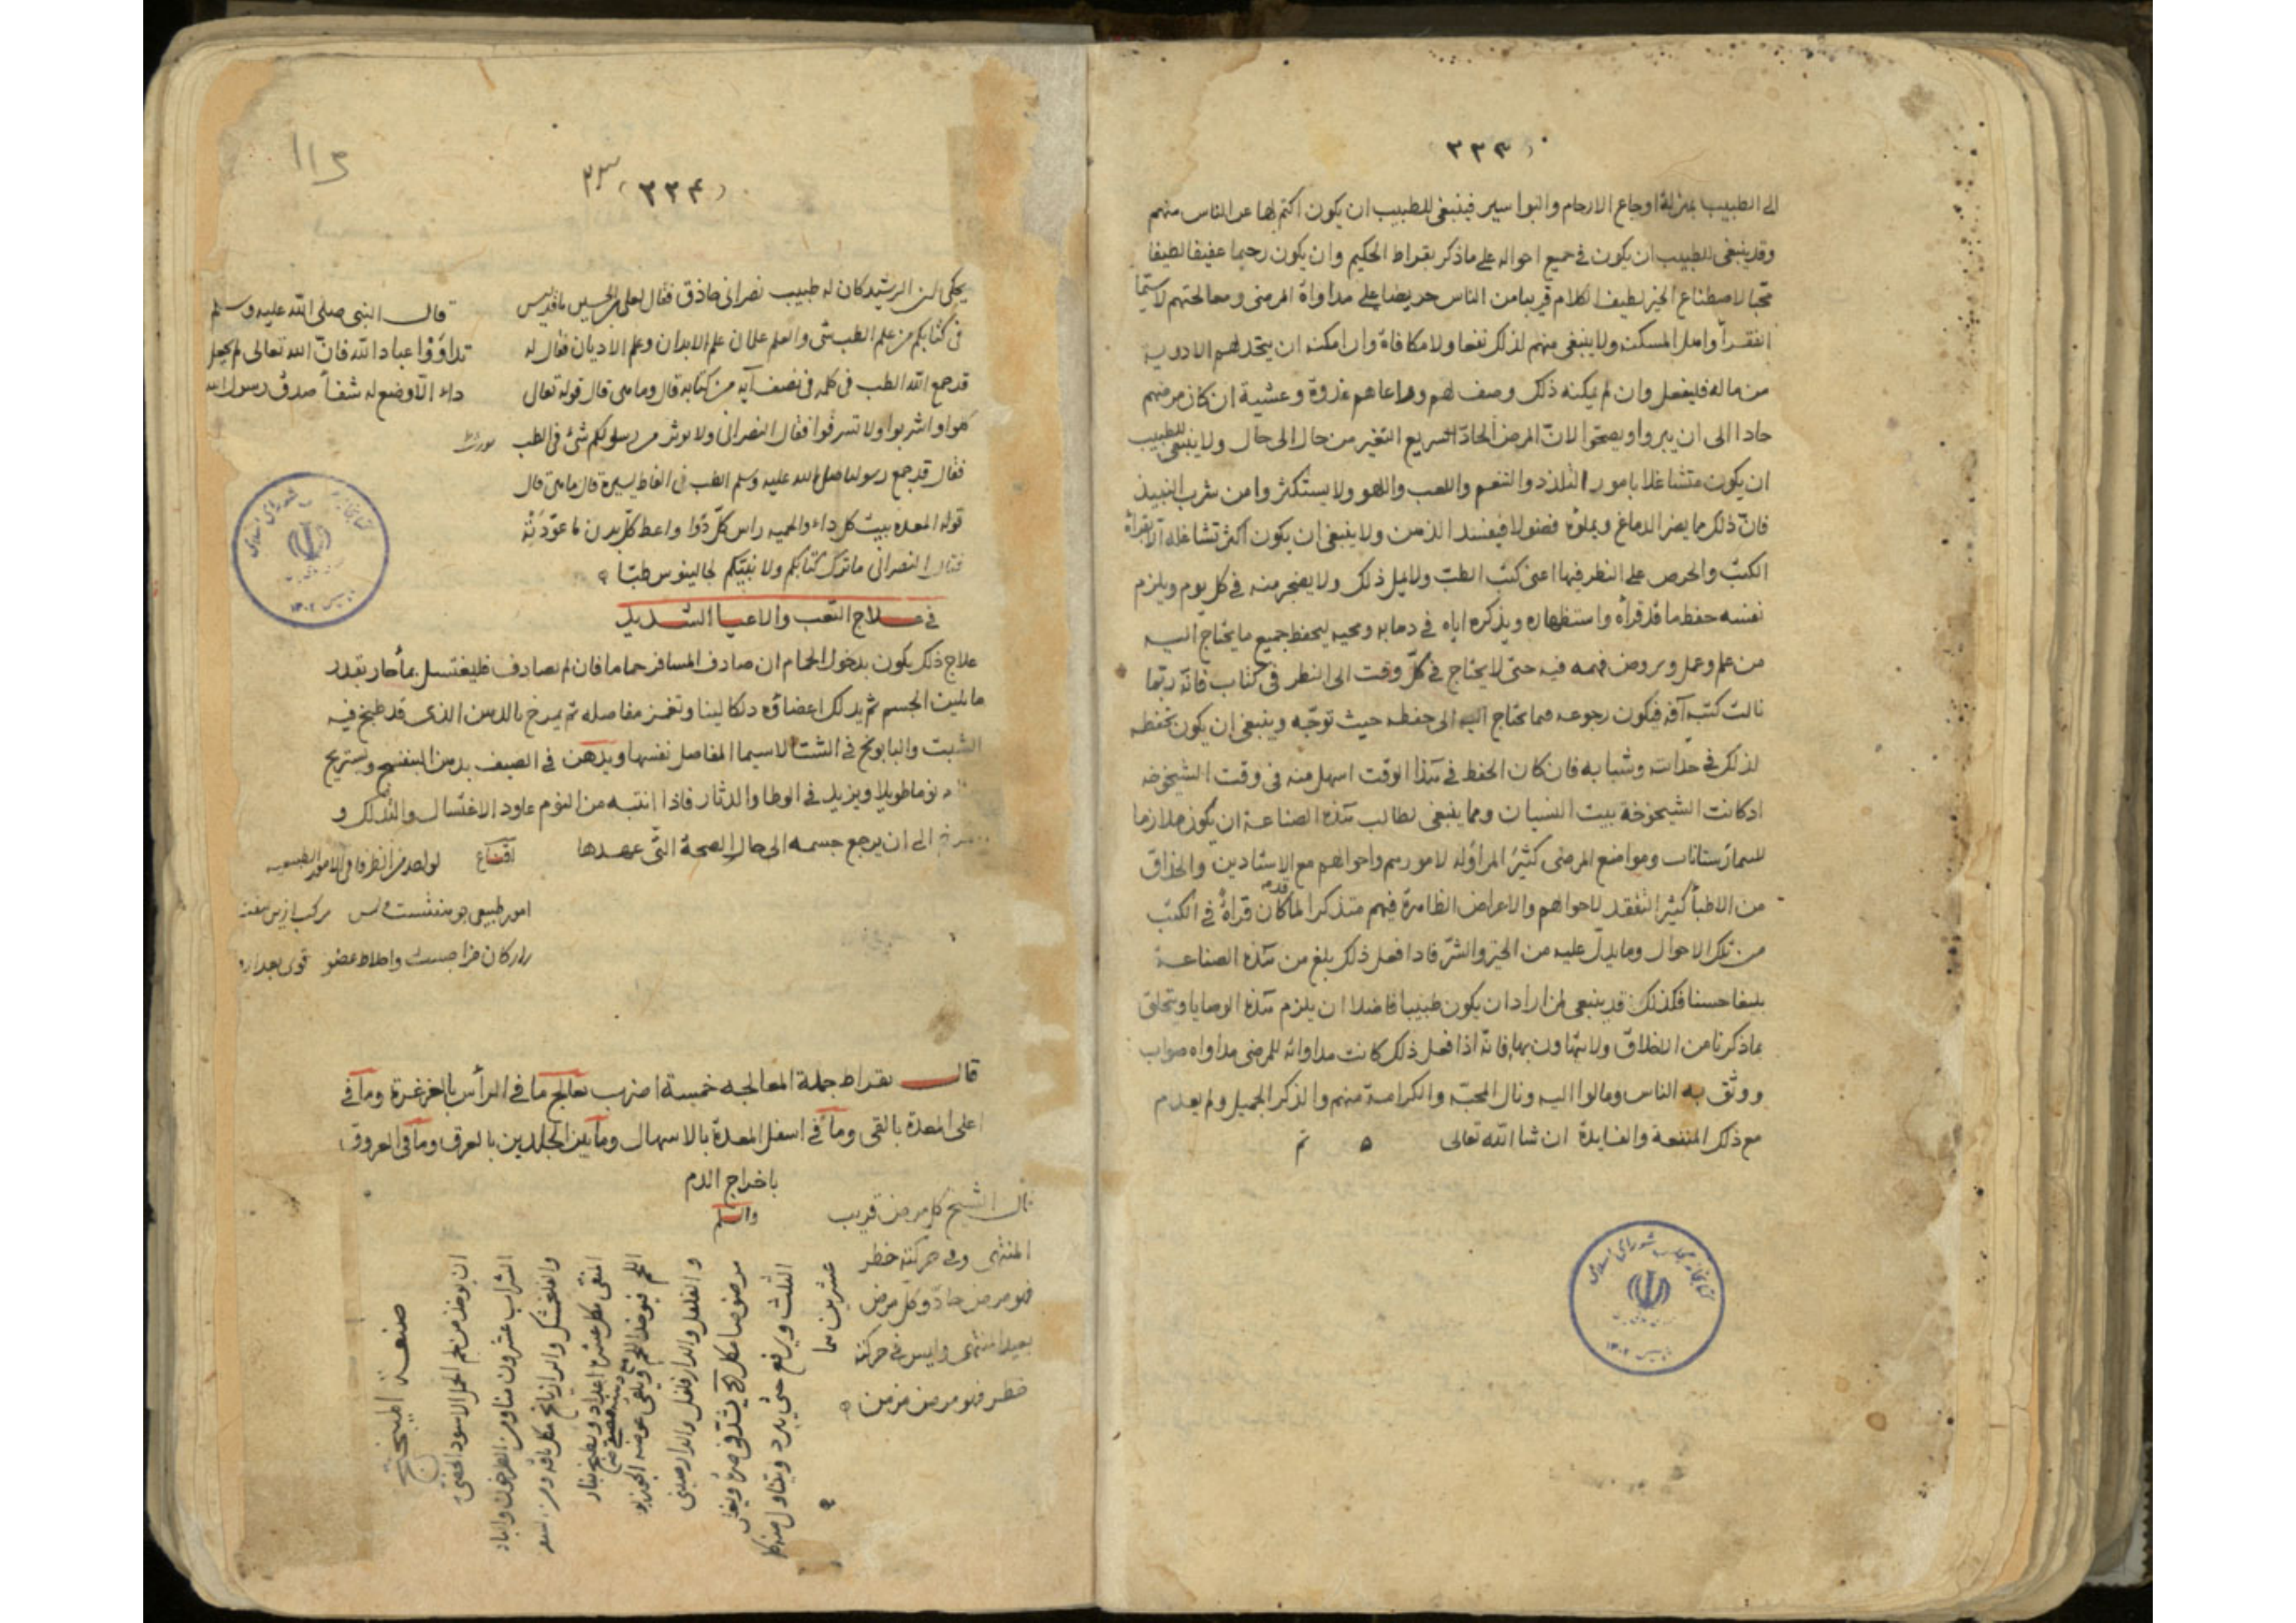 (٣٣٣)
الى الطبيب بمنزلة اوجاع الارحام والبواسير فينبغى للطبيب ان يكون اكتم لها من الناس منهم
وقد ينبغى للطبيب ان يكون فى جميع احواله على ماذكر بقراط الحكيم وان يكون رحيما عفيفا لطيفا
محبا لاصطناع الخير لطيف الكلام قريبا من الناس حريصا على مداواة المرضى ومعالجتهم لا سيما
الفقرا واهل المسكنه ولا ينبغى منهم لذلك نفعا ولا مكافاة وان امكنه ان يتخذ لهم الادوية
من ماله فليفعل وان لم يمكنه ذلك وصف لهم وراعاهم غدوة وعشية ان كان مرضهم
حادا الى ان يبروا ويصحوا لان المرض الحاد سريع التغير من حال الى حال ولا ينبغى للطبيب
ان يكون متشاغلا بامور التلذذ والتنعم واللعب واللهو ولا يستكثروا من شرب النبيذ
فان ذلك مما يضر الدماغ ويملؤه فضولا فيفسد الذهن ولا ينبغى ان يكون اكثر تشاغله الا بقراة
الكتب والحرص على النظر فيها اعنى كتب الطب ولا يمل ذلك ولا يضجر منه فى كل يوم ويلزم
نفسه حفظ ما قد قرأه واستظهاره ويذكره اياه فى ذهابه ومجيه ليحفظ جميع ما يحتاج اليه
من علم وعمل ويروض فهمه فيه حتى لا يحتاج فى كل وقت الى النظر فى كتاب فانه ربما
نالت كتبه آفه فيكون رجوعه فيما يحتاج اليه الى حفظه حيث توجه وينبغى ان يكون تحفظه
لذلك فى حداثته وشبابه فان كان الحفظ فى هذا الوقت اسهل منه فى وقت الشيخوخه
اذ كانت الشيخوخة بيت النسيان ومما ينبغى لطالب هذه الصناعة ان يكون ملازما
للبيمارستانات ومواضع المرضى كثير المزاوله لامورهم واحوالهم مع الاستادين والحذاق
من الاطبا كثير التفقد لاحوالهم والاعراض الظاهرة فيهم متذكرا لما كان قد قراه فى الكتب
من تلك الاحوال وما يدل عليه من الخير والشر فاذا فعل ذلك بلغ من هذه الصناعة
بليغا حسنا فكذلك قد ينبغى لمن اراد ان يكون طبيبا فاضلا ان يلزم هذه الوصايا ويتخلق
بما ذكرنا من الاخلاق ولا يتهاون بها فانه اذا فعل ذلك كانت مداواته للمرضى مداواه صواب
ووثق به الناس ومالوا اليه ونال المحبة والكرامة منهم والذكر الجميل ولم يعدم
مع ذلك المنفعة والفايدة ان شا الله تعالى ٥ تم
(٣٣٤)
يحكى ان الرشيد كان له طبيب نصرانى حاذق فقال لعلى بن الحسين ما قد ليس
فى كتابكم من علم الطب شى والعلم علمان علم الابدان وعلم الاديان فقال له
قد جمع الله الطب فى كله فى نصف آيه من كتابه قال وما هى قال قوله تعالى
كلوا واشربوا ولا تسرفوا فقال النصرانى ولا يوثر من رسولكم شئ فى الطب
فقال قد جمع رسولنا صلى الله عليه وسلم الطب فى الفاظ يسيرة قال ما هى قال
قوله المعده بيت كل داء والحميه راس كل دوا واعط كل بدن ما عودته
فقال النصرانى ما ترك كتابكم ولا نبيكم لجالينوس طبا
قال النبى صلى الله عليه وسلم
تداووا عباد الله فان الله تعالى لم يجعل
داء الا وضع له شفاً صدق رسول الله
فى علاج التعب والاعيا الشديد
علاج ذلك يكون بدخول الحمام ان صادف المسافر حماما فان لم يصادف فليغتسل بمأ حار بقدر
ما يلين الجسم ثم يدلك اعضاؤه دلكا لينا وتغمز مفاصله ثم يمرخ بالدهن الذى قد طبخ فيه
الشبت والبابونج فى الشتا لاسيما المفاصل نفسها ويدهن فى الصيف بدهن البنفسج ويستريح
نوما طويلا ويزيد فى الوطا والدثار فاذا انتبه من النوم عاود الاغتسال والتدلك و
الى ان يرجع جسمه الى حال الصحة التى عهدها
قال بقراط جملة المعالجه خمسة اضرب يعالج ما فى الرأس بالغرغرة وما فى
اعلى المعدة بالقى وما فى اسفل المعدة بالاسهال وما بين الجلدين بالعرق وما فى العروق
باخراج الدم
والسلم
قال الشيخ كل مرض قريب
المنتهى وفى حركته خطر
فهو مرض حاد وكل مرض
بعيد المنتهى وليس فى حركته
خطر فهو مرض مزمن
صنعة الميبختج
ان يوخذ من لحم الحمل الاسود الخصى
الثلث ويرفع حتى يبرد ويتناول منه كل